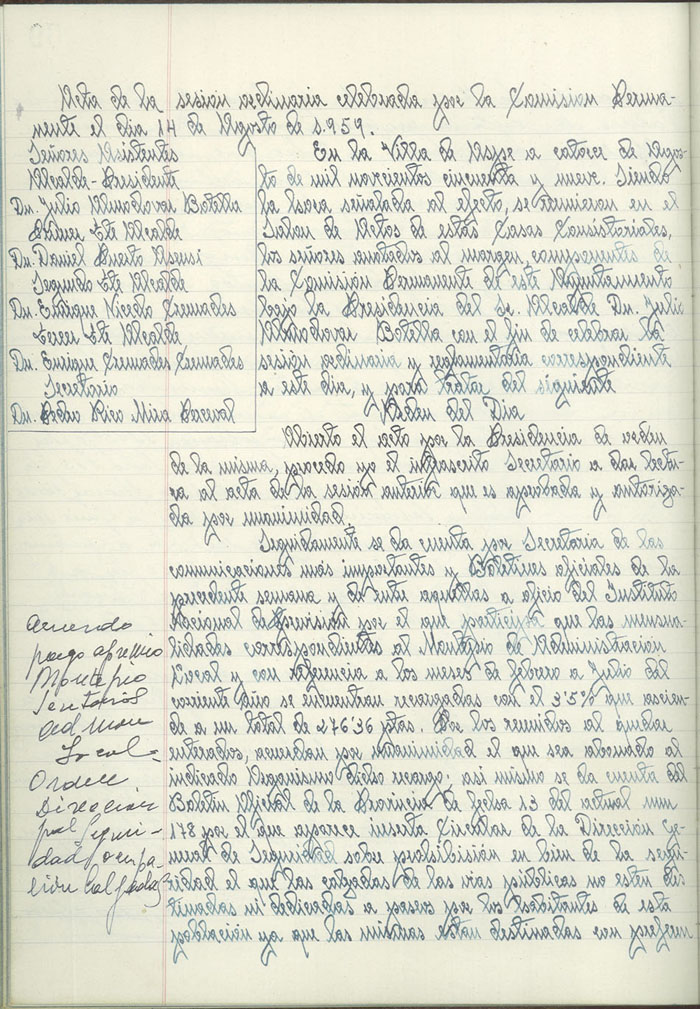 Acta de la sesion ordinaria celebrada por la Comision Perma-
nente el dia 14 de Agosto de 1.959.
Señores Asistentes
Alcalde-Presidente
Dn. Julio Almodovar Botella
Primer Tte Alcalde
Dn. Daniel Puerto Asensi
Segundo Tte Alcalde
Dn. Enrique Vicedo Cremades
Tercer Tte Alcalde
Dn. Enrique Cremades Cremades
Secretario
Dn. Pedro Rico Mira Perceval
En la Villa de Aspe a catorce de Agos-
to de mil novecientos cincuenta y nueve. Siendo
la hora señalada al efecto, se reunieron en el
Salon de Actos de estas Casas Consistoriales,
los señores anotados al margen, componentes de
la Comisión Permanente de este Ayuntamiento
bajo la Presidencia del Sr. Alcalde Dn. Julio
Almodovar Botella con el fin de celebrar la
sesión ordinaria y reglamentaria correspondiente
a este dia, y para tratar del siguiente
Orden del Dia
Abierto el acto por la Presidencia de orden
de la misma, procedo yo el infrascrito Secretario a dar lectu-
ra al acta de la sesión anterior que es aprobada y autoriza-
da por unanimidad.
Seguidamente se da cuenta por Secretaria de las
comunicaciones más importantes y Boletines oficiales de la
precedente semana y de entre aquellas a oficio del Instituto
Nacional de Previsión por el que participa que las mensua-
lidades correspondientes al Montepio de Administración
Local y con referencia a los meses de febrero a Julio del
corriente año se encuentran recargadas con el 3'5% que ascien-
de a un total de 276'36 ptas. Por los reunidos al quedar
enterados, acuerdan por unanimidad el que sea abonado al
indicado Organismo dicho recargo; asi mismo se da cuenta del
Boletin Oficial de la Provincia de fecha 13 del actual num
178 por el que aparece inserta Circular de la Dirección Ge-
neral de Seguridad sobre prohibición en bien de la segu-
ridad el que las calzadas de las vias públicas no esten des-
tinadas ni dedicadas a paseos por los habitantes de esta
población ya que las mismas estan destinadas con preferen
acuerdo
pago apremio
Montepio
Sanitarios
admon
Local=
Orden
Direccion
gral Seguri-
dad ocupa-
ción calzadas